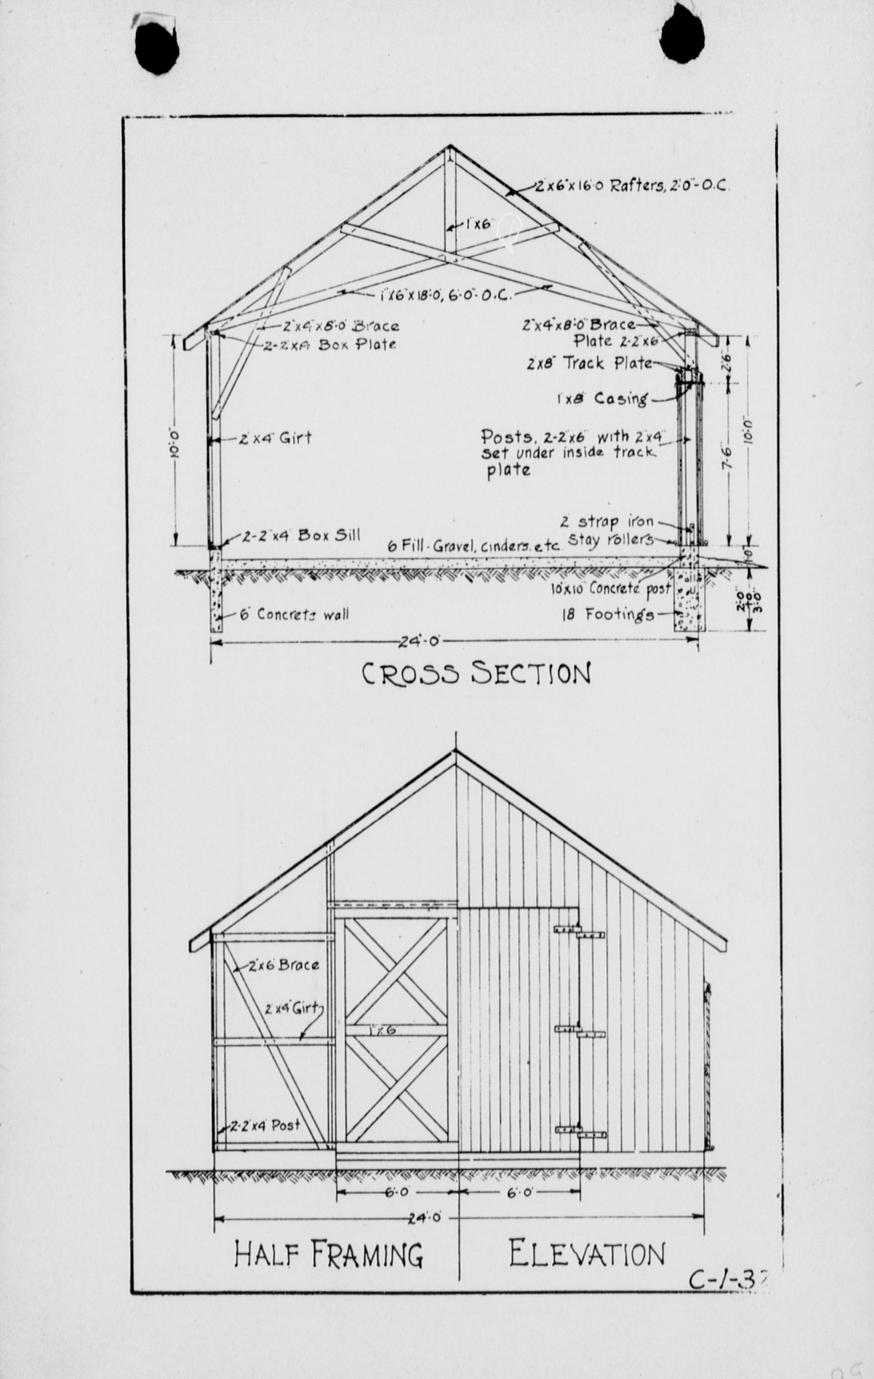 2"x6"x16'-0 Rafters, 2'-0"-O.C.
1"x6"
1"x6"x18'-0, 6'-0"-O.C.
2"x4"x8'-0" Brace
2-2"x4" Box Plate
2"x4"x8'-0" Brace
Plate 2-2"x6"
2"x8" Track Plate
1"x8" Casing
2'-6"
10'-0"
2"x4" Girt
Posts, 2-2"x6" with 2"x4"
set under inside track
plate
7'-6"
10'-0"
2-2"x4" Box Sill
6" Fill-Gravel, cinders. etc.
2 strap iron
stay rollers
10"x10" Concrete post
6" Concrete wall
18" Footings
2'-0"
to
3'-0"
24'-0"
CROSS SECTION
2"x6" Brace
2"x4" Girt
1"x6"
2-2"x4" Post
6'-0
6'-0"
24'-0"
HALF FRAMING
ELEVATION